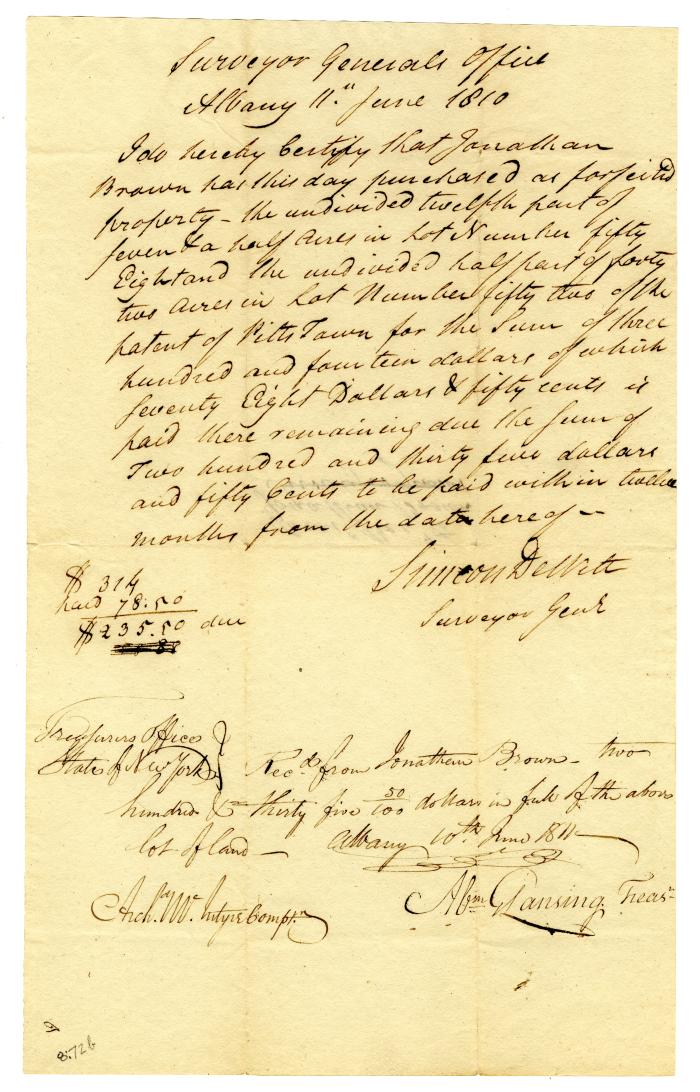 Surveyor Generals Office
Albany 11th June 1810
I do hereby Certify that Jonathan
Brown has this day purchased as forfeited
property - the undivided twelfth part of
seven & a half Acres in Lot Number fifty
Eight and the undivided half part of forty
two Acres in Lot Number fifty two of the
patent of Pitts Town for the Sum of three
hundred and fourteen dollars of which
Seventy Eight Dollars & fifty cents is
paid there remaining due the Sum of
Two hundred and thirty five dollars
and fifty Cents to be paid within twelve
months from the date hereof -
Simeon DeWitt
Surveyor Genl
$ 314
paid 78:50
$ 235.50 due
Treasurers Office
State of New York
Recd from Jonathan Brown - two
hundred & thirty five 50/100 dollars in full of the above
lot of land - Albany 10th June 1811 -
Archd Mc Intyre Compr
Abm G Lansing Treasr
8:726